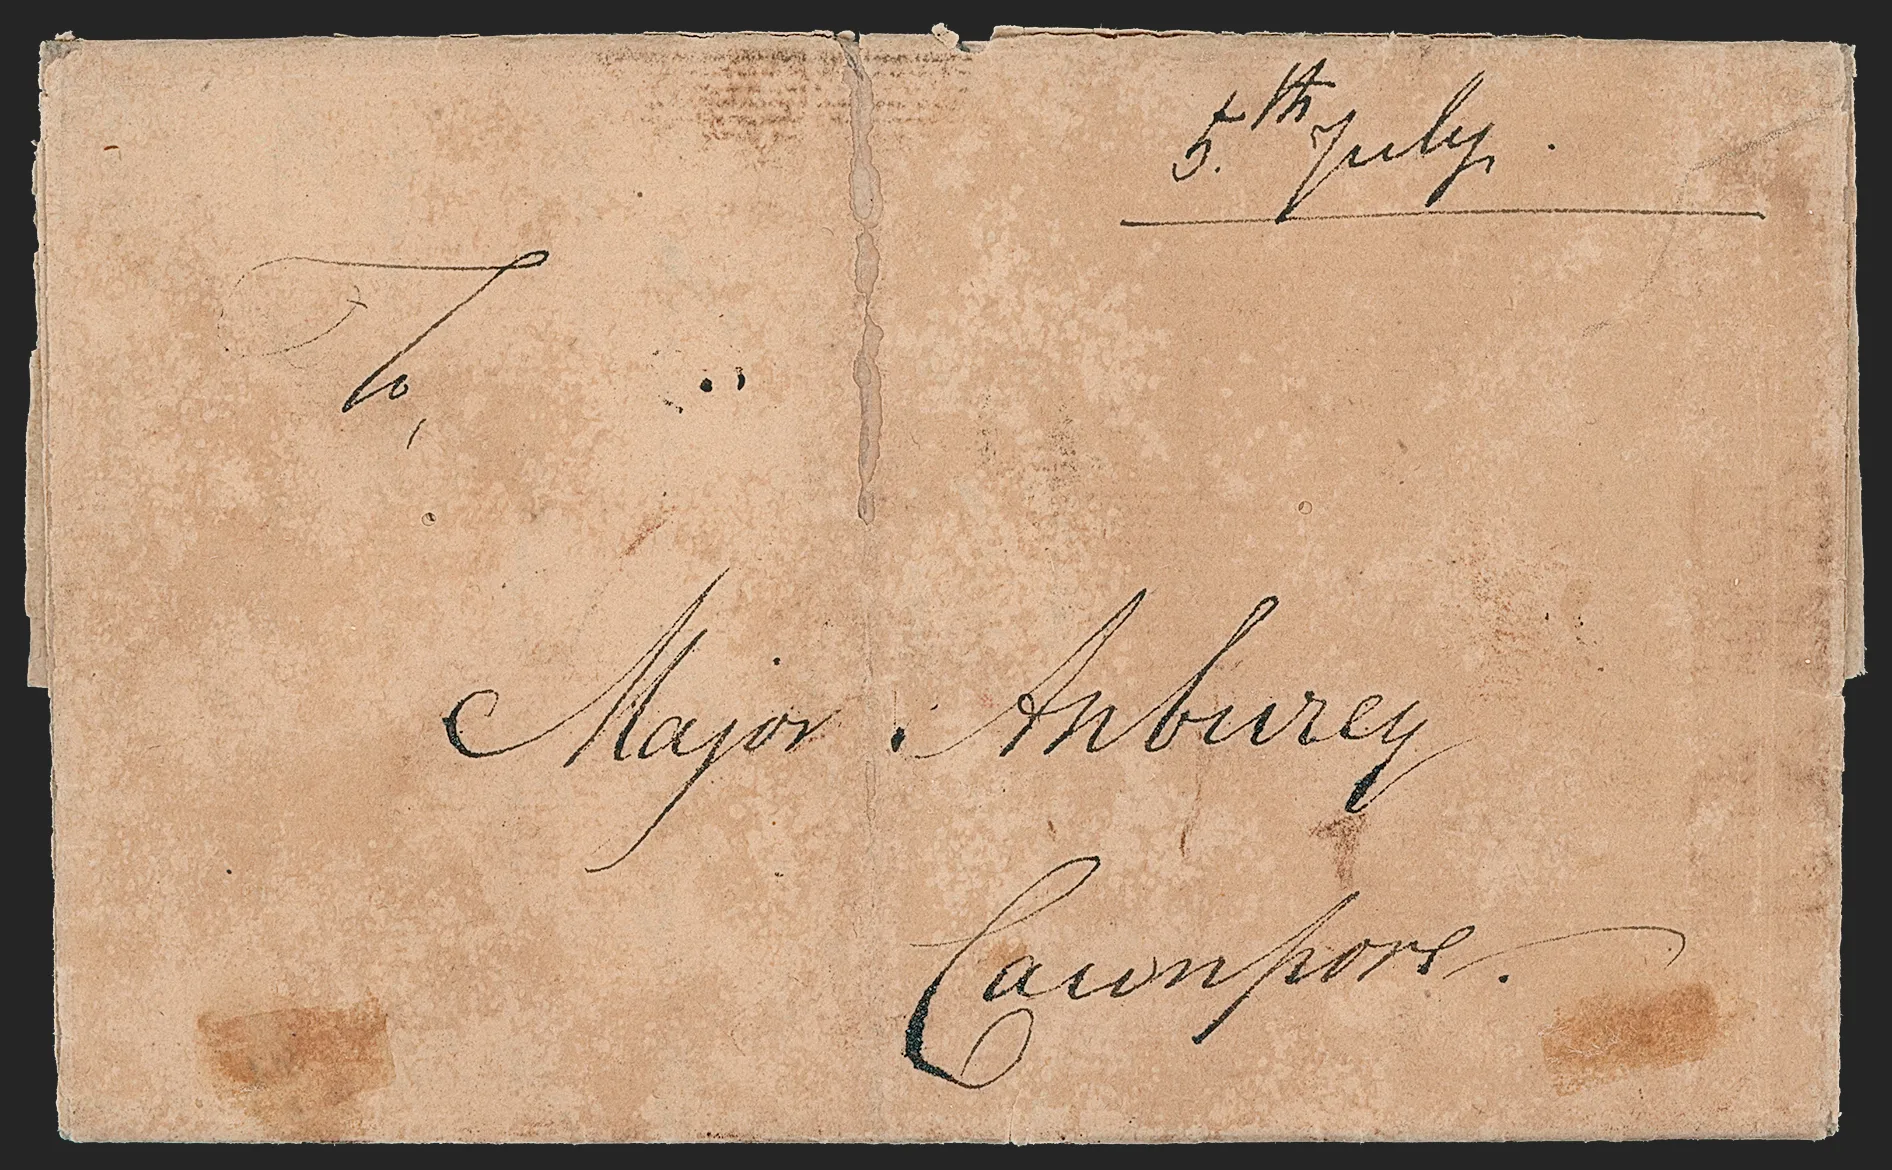 5.th July.
To,
Major. Anburey
Cawnpore.